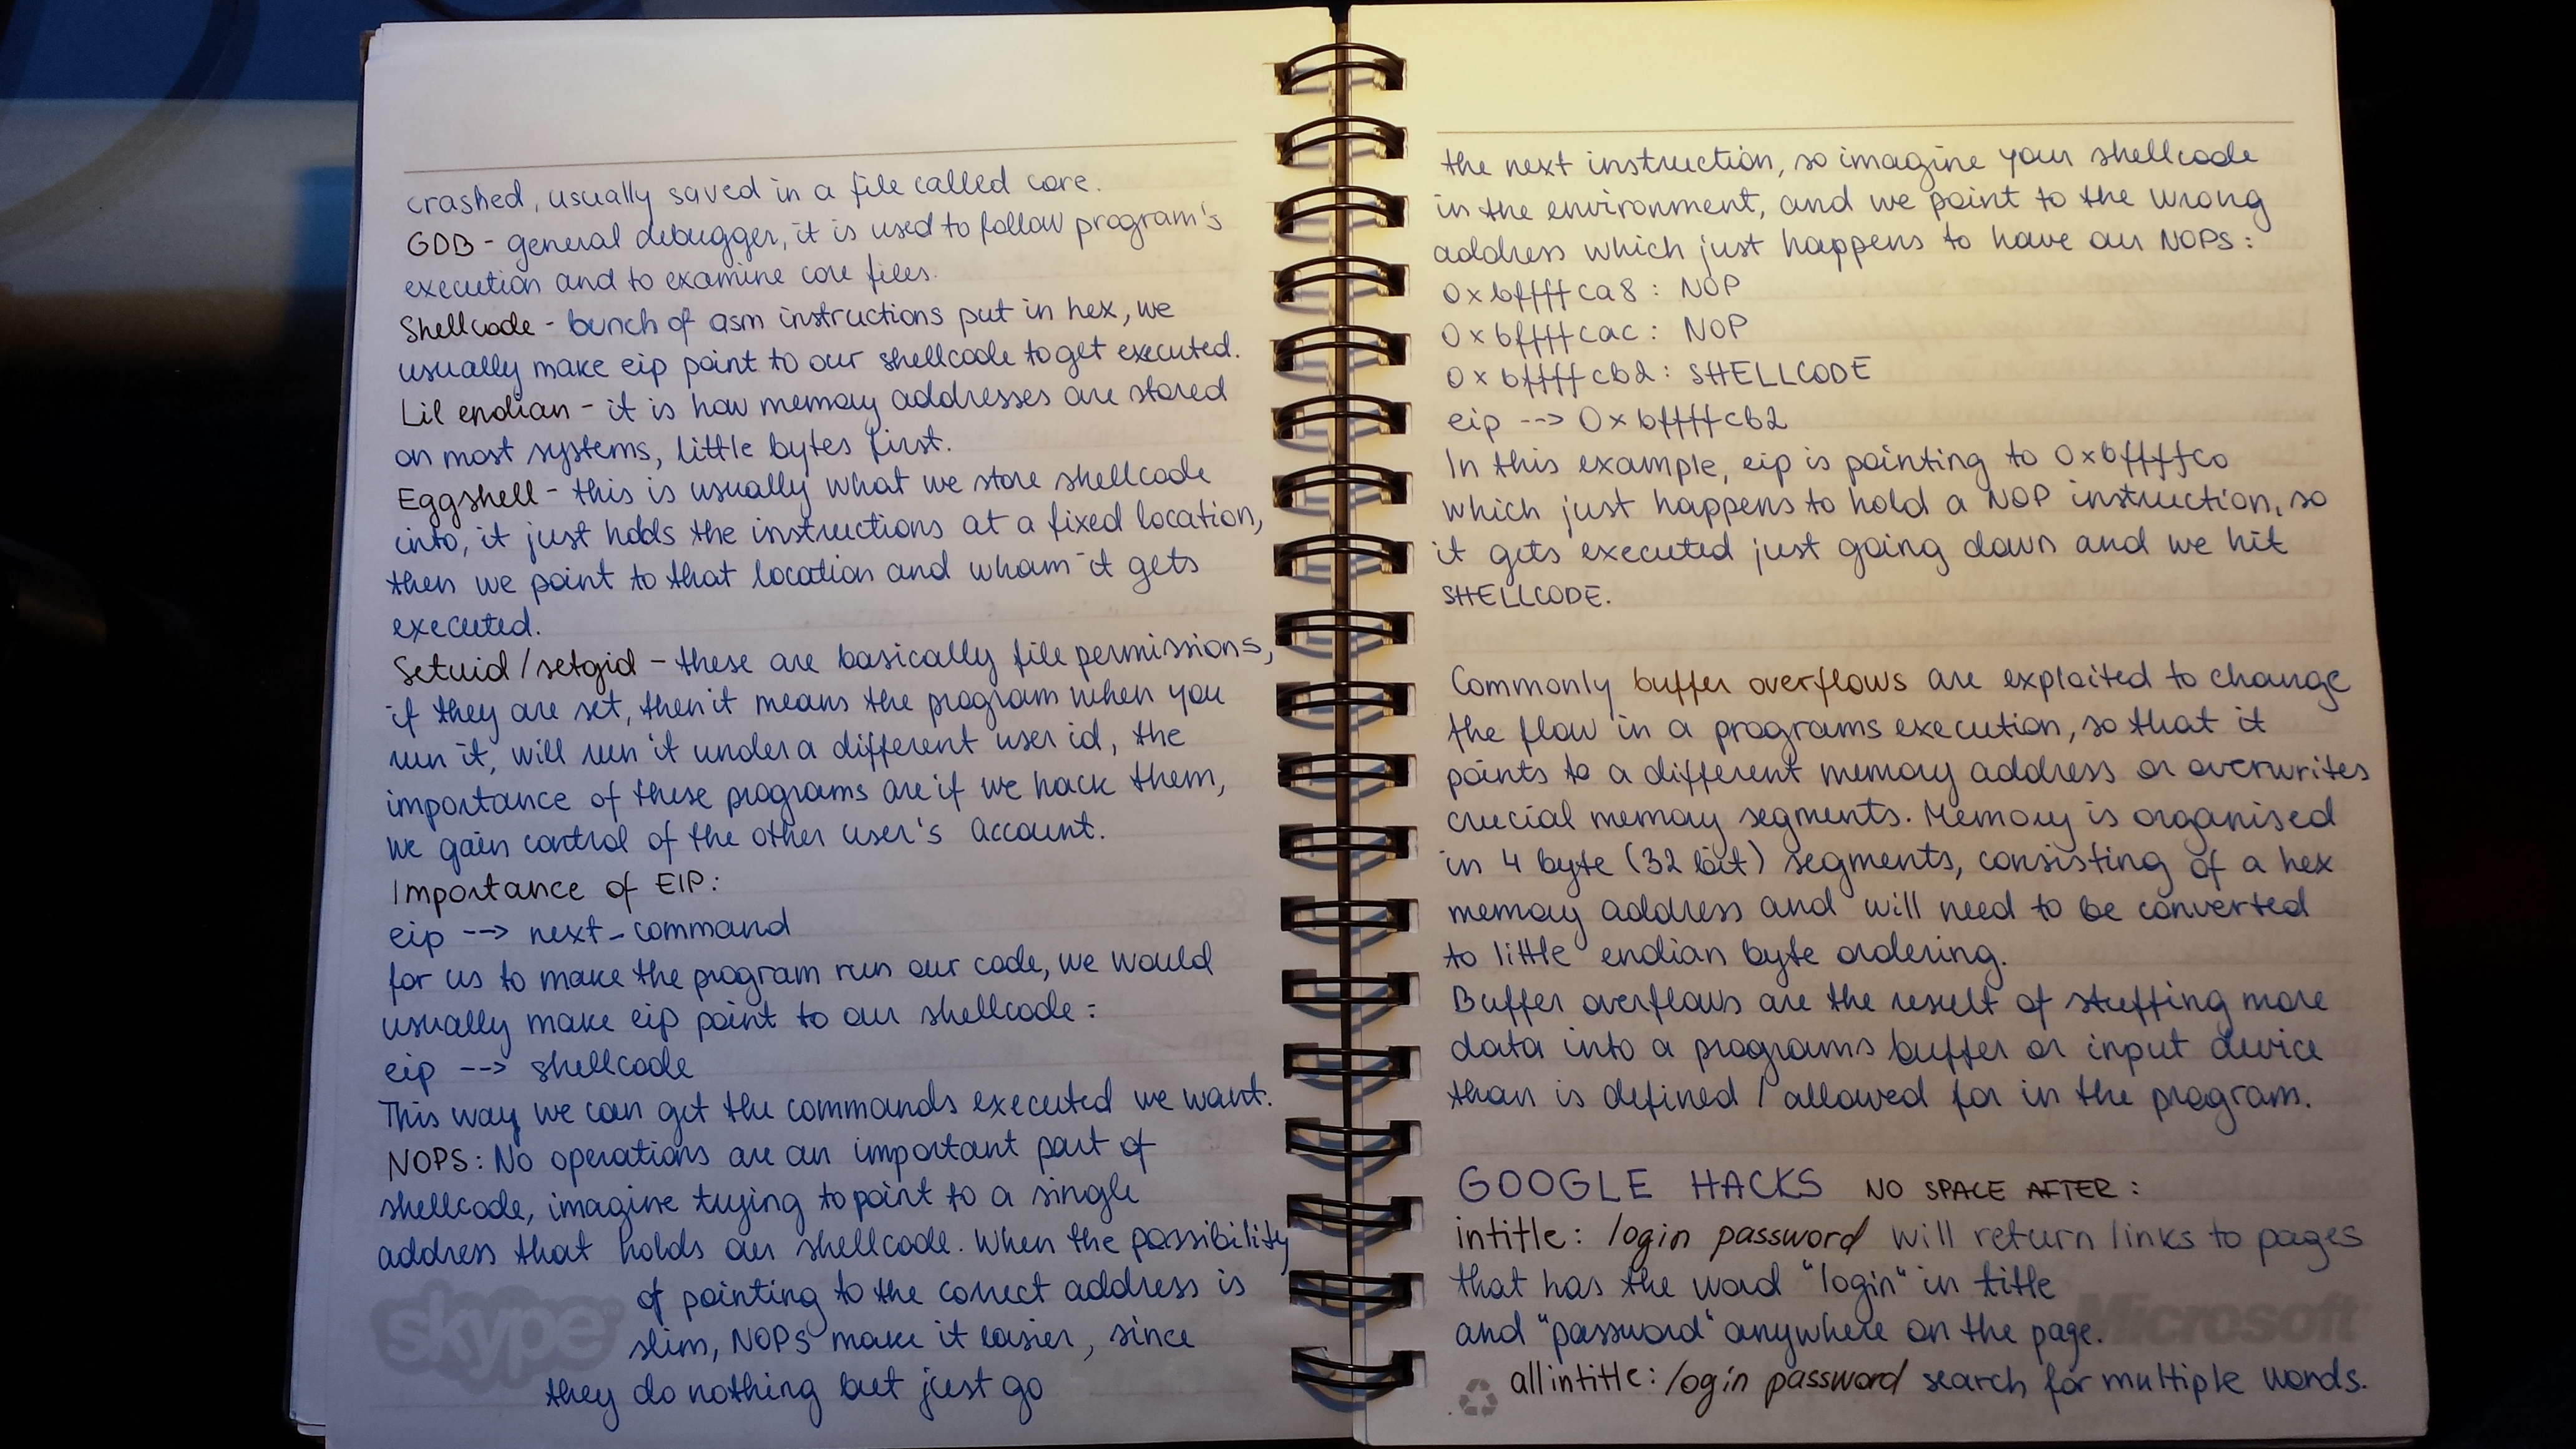 crashed, usually saved in a file called core.
GDB - general debugger, it is used to follow program's
execution and to examine core files.
Shellcode - bunch of asm instructions put in hex, we
usually make eip point to our shellcode to get executed.
Lil endian - it is how memory addresses are stored
on most systems, little bytes first.
Eggshell - this is usually what we store shellcode
into, it just holds the instructions at a fixed location,
then we point to that location and wham it gets
executed.
Setuid/setgid - these are basically file permissions,
if they are set, then it means the program when you
run it, will run it under a different user id, the
importance of these programs are if we hack them,
we gain control of the other user's account.
Importance of EIP:
eip --> next_command
for us to make the program run our code, we would
usually make eip point to our shellcode:
eip --> shellcode
This way we can get the commands executed we want.
NOPS: No operations are an important part of
shellcode, imagine trying to point to a single
address that holds our shellcode. When the possibility
of pointing to the correct address is
slim, NOPS make it easier, since
they do nothing but just go
skype
the next instruction, so imagine your shellcode
in the environment, and we point to the wrong
address which just happens to have our NOPS:
0xbffffca8: NOP
0xbffffcac: NOP
0xbffffcb2: SHELLCODE
eip --> 0xbffffcb2
In this example, eip is pointing to 0xbffffco
which just happens to hold a NOP instruction, so
it gets executed just going down and we hit
SHELLCODE.
Commonly buffer overflows are exploited to change
the flow in a programs execution, so that it
points to a different memory address or overwrites
crucial memory segments. Memory is organised
in 4 byte (32 bit) segments, consisting of a hex
memory address and will need to be converted
to little endian byte ordering.
Buffer overflows are the result of stuffing more
data into a programs buffer or input device
than is defined / allowed for in the program.
GOOGLE HACKS NO SPACE AFTER :
intitle: login password will return links to pages
that has the word "login" in title
and "password" anywhere on the page.
allintitle: login password search for multiple words.
Microsoft